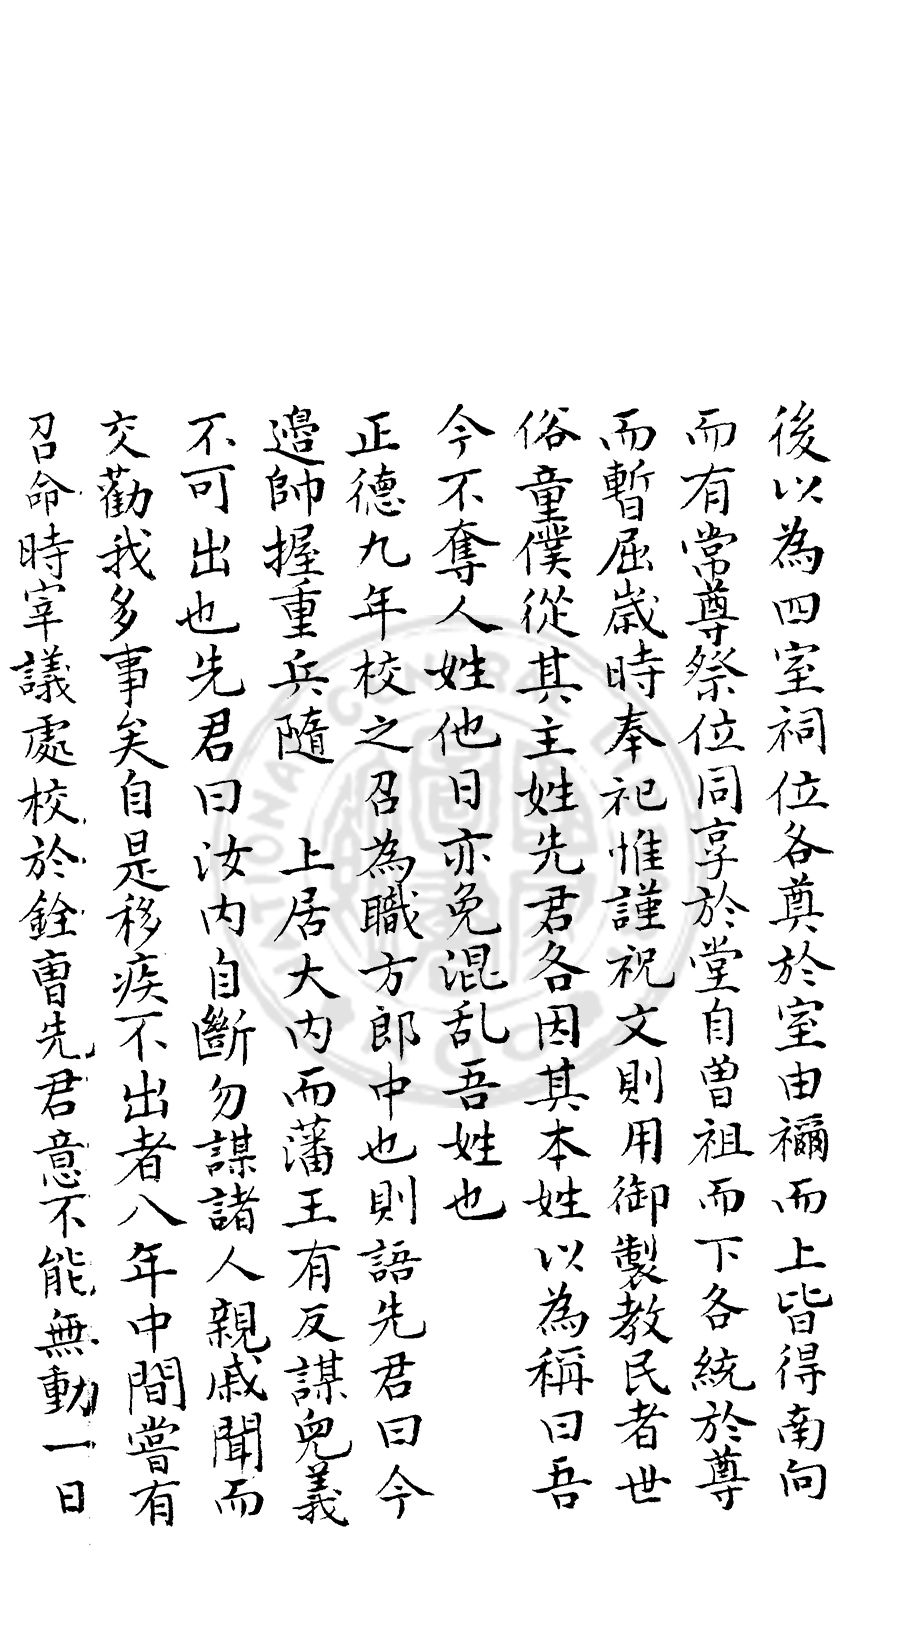 後以為四室祠位各奠於室由禰而上皆得南向
而有常尊祭位同享於堂自曽祖而下各統於尊
而暫屈歲時奉祀惟謹祝文則用御製教民者世
俗童僕從其主姓先君各因其本姓以為稱曰吾
今不奪人姓他日亦免混乱吾姓也
正德九年校之召為職方郎中也則語先君曰今
邉帥握重兵隨 上居大内而藩王有反謀兒義
不可出也先君曰汝内自斷勿謀諸人親戚聞而
交勸我多事矣自是移疾不出者八年中間嘗有
召命時宰議處校於銓曺先君意不能無動一日
NATIONAL CENTRAL